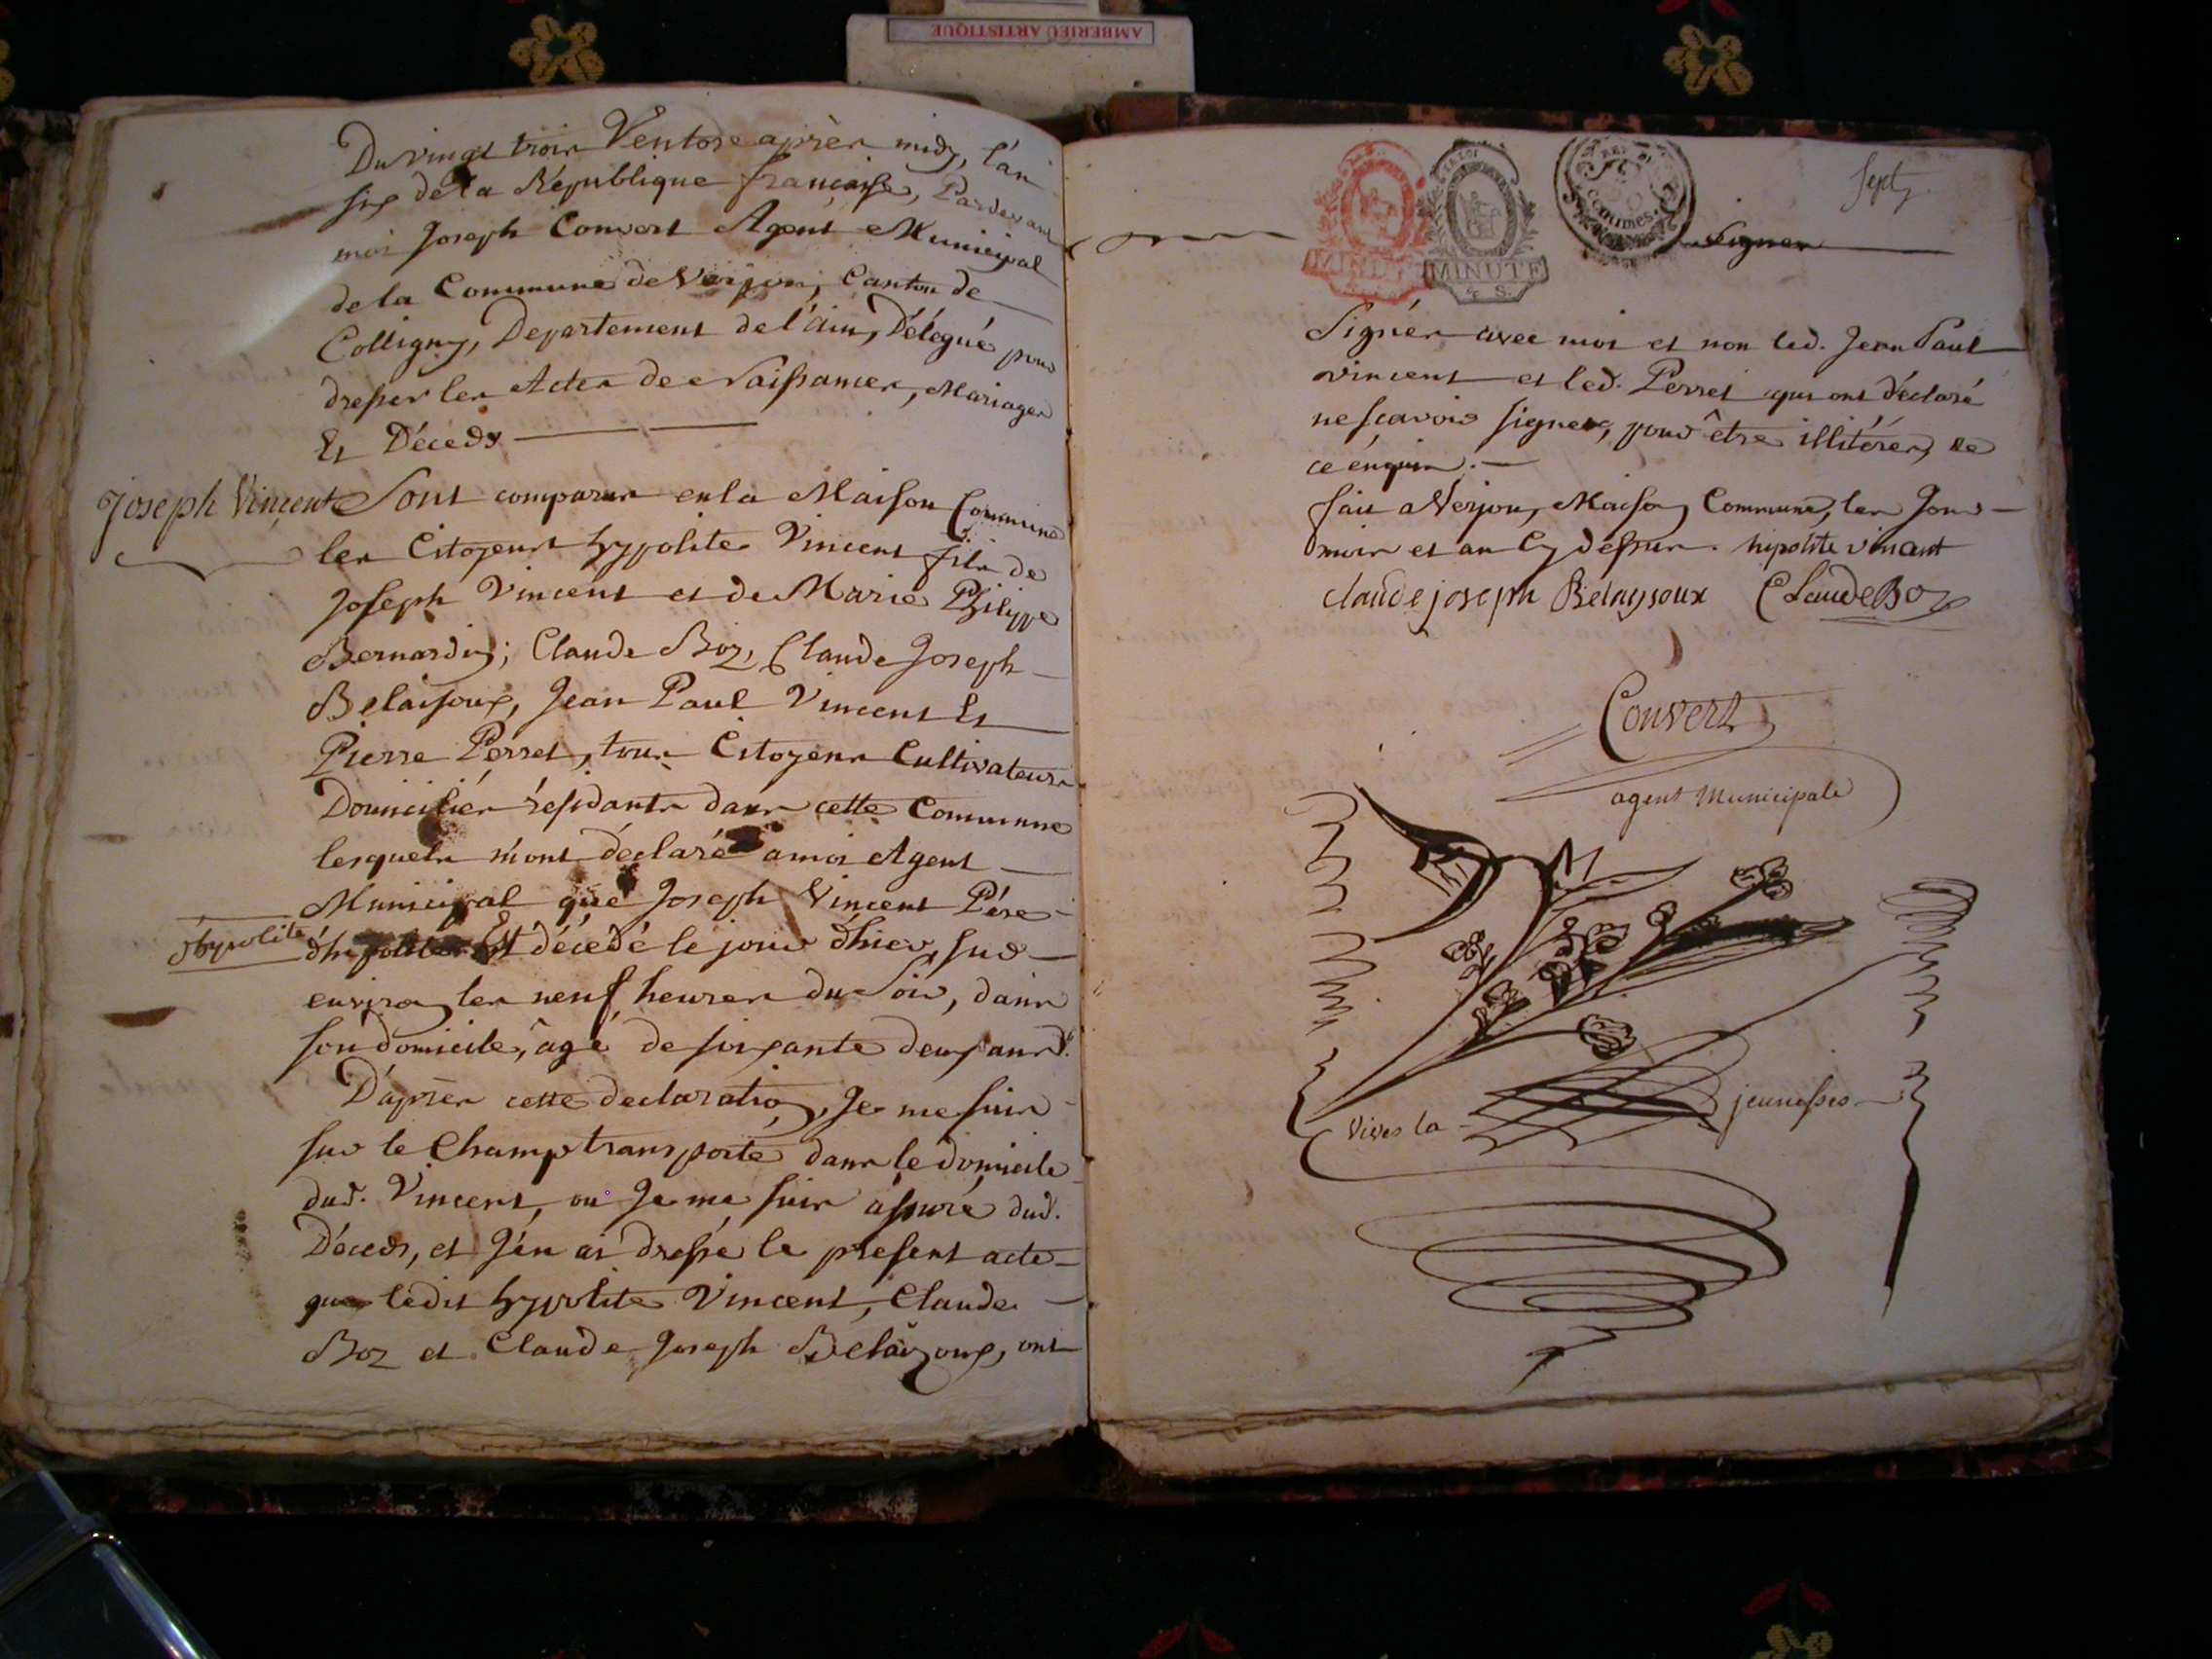 AMBERIEU ARTISTIQUE
Du vingt trois Ventose après midy, l'an
six de la République française, Pardevant
moi Joseph Convert Agent Municipal
de la Commune de Verjon, Canton de
Colligny, Departement de l'ain, Délégué pour
dresser les Actes de Naissances, Mariages
Et Déceds
Joseph Vincent
Sont comparus en la Maison Commune
les Citoyens hypolite Vincent fils de
Joseph Vincent et de Marie Philippe
Bernardin; Claude Boz, Claude Joseph
Belaisoux, Jean Paul Vincent Et
Pierre Perret, tous Citoyens Cultivateurs
Domiciliés résidants dans cette Commune
lesquels m'ont déclaré a moi Agent
Municipal que Joseph Vincent Pére
d'hypolite
Est décedé le jour d'hier, sur
environ les neuf heures du Soir, dans
son domicile, âgé de soixante deux ans
D'après cette declaration, Je me suis
sur le Champ transporté dans le domicile
dud. Vincent, ou Je me suis assuré dud.
Déceds, et J'en ai dressé le present acte
que ledit hypolite Vincent, Claude
Boz et Claude Joseph Belaizoux, ont
Sept
MINUTE
MINUTE
CENTIMES.
Signer
Signés avec moi et non led. Jean Paul
vincent et led. Perret qui ont déclaré
ne scavoir signer, pour être illitérés, de
ce enquis.
fait a Verjon, Maison Commune, les Jour
mois et an cy dessus. hipolite vincent
claude joseph Belaysoux Claude Boz
Convert
agent Municipale
Vives la jeunesses